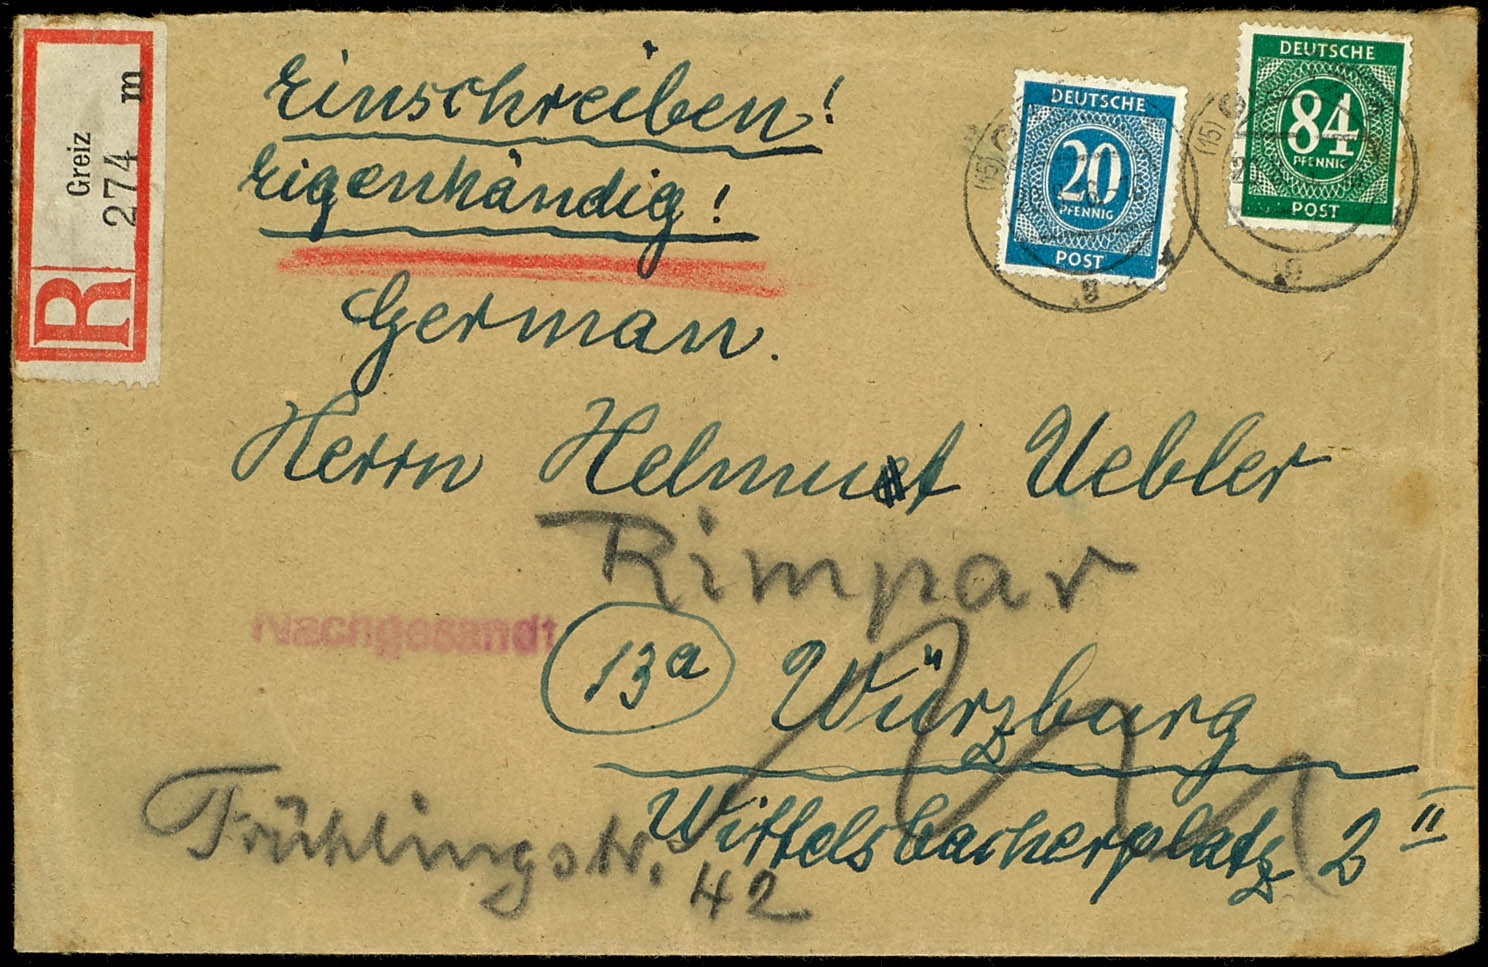 Greiz
274
m
R
Einschreiben!
Eigenhändig!
German.
Herrn Helmut Uebler
Rimpar
Nachgesandt
13a Würzburg
Wittelsbacherplatz 2 II
Frühlingstr. 42
DEUTSCHE
20
PFENNIG
POST
DEUTSCHE
84
PFENNIG
POST
(15)
(15)